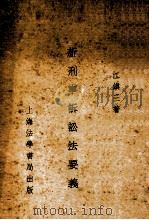 江鎮三著
新刑事訴訟法要義
上海法學書局出版